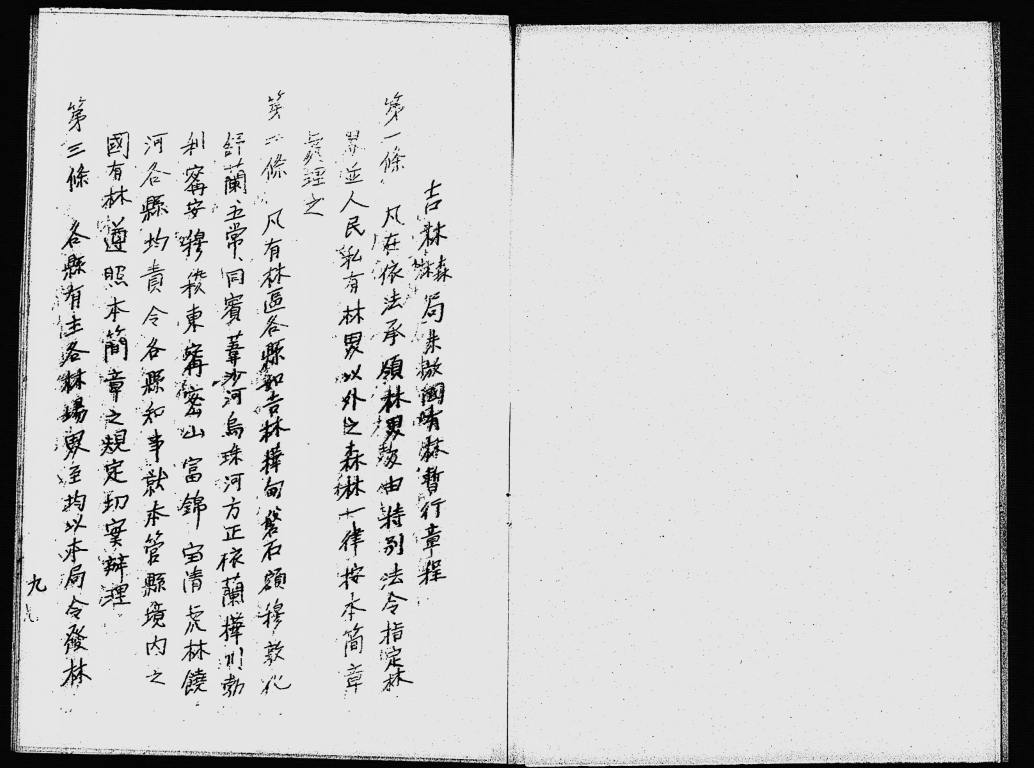 吉林森林局未放國有林暫行章程
第一條 凡在依法承領林界及由特別法令指定林
界並人民私有林界以外之森林一律按本簡章
辦理之
第二條 凡有林區各縣如吉林樺甸磐石額穆敦化
舒蘭五常、同賓葦沙河烏珠河方正依蘭樺川勃
利寗安穆稜東寗密山富錦宝清虎林饒
河各縣均責令各縣知事就本管縣境内之
國有林遵照本簡章之規定切實辦理
第三條 各縣有主各林場界至均以本局令發林
九